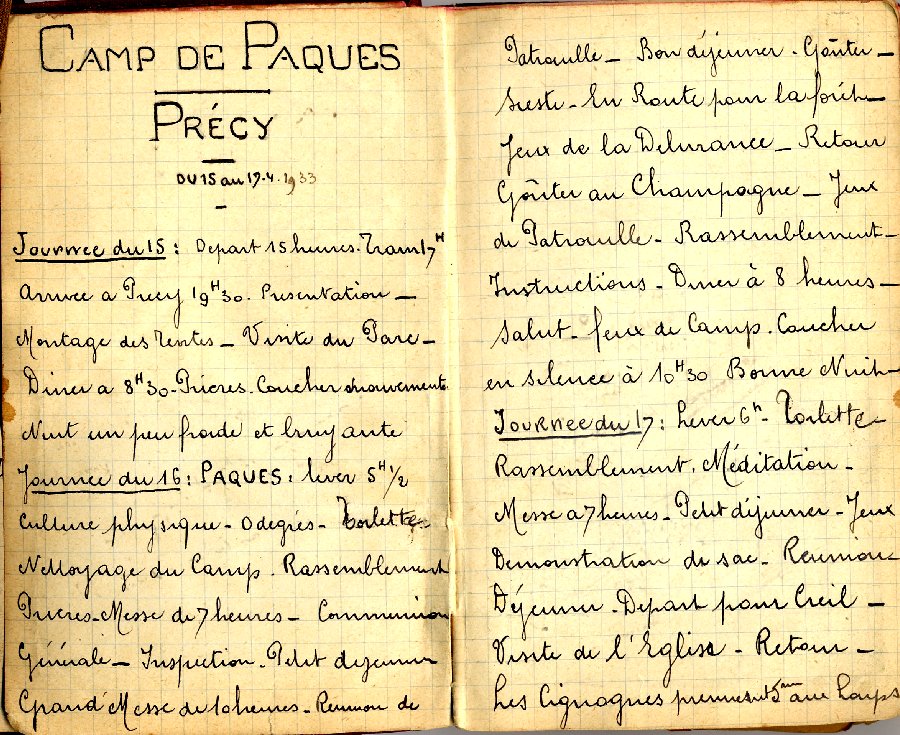 CAMP DE PAQUES
PRÉCY
DU 15 au 17.4.1933
Journee du 15 : Depart 15 heures. Tram 17H
Arrivee a Precy 19H30. Presentation —
Montage des Tentes — Visite du Parc —
Diner a 8H30. Prieres. Coucher
Nuit un peu froide et bruyante
Journee du 16 : PAQUES : lever 5H 1/2
Culture physique — 0 degrés — Toilette
Nettoyage du Camp. Rassemblement
Prieres. Messe de 7 heures — Communion
Générale — Inspection. Petit dejeuner
Grand' Messe de 10 heures. Réunion de
Patrouille — Bon déjeuner. Goûter —
Sieste — En Route pour la forêt —
Jeux de la Delivrance — Retour
Goûter au Champagne — Jeux
de Patrouille. Rassemblement —
Instructions. Diner à 8 heures —
Salut. feux de Camp. Coucher
en silence à 10H30 Bonne Nuit —
Journee du 17 : Lever 6h — Toilette —
Rassemblement. Méditation —
Messe a 7 heures — Petit déjeuner — Jeux
Demonstration de sac — Reunion —
Déjeuner. Depart pour Creil —
Visite de l'Eglise — Retour —
Les Cigognes prennent 5 aux Loups